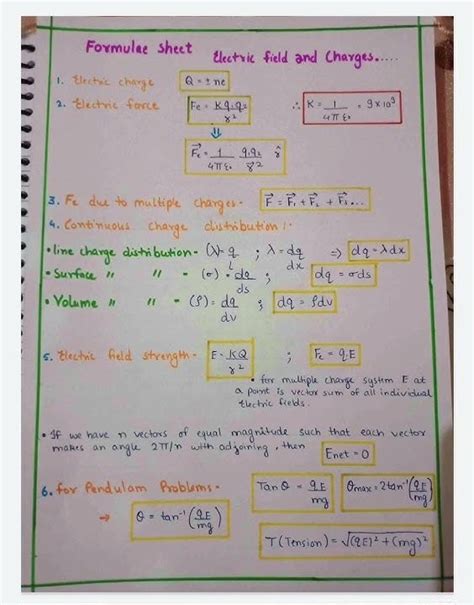 Formulae sheet Electric field and Charges.....
1. Electric charge Q = ± ne
2. Electric force Fe = Kq₁q₂/r² ∴ K = 1/4πε₀ = 9×10⁹
⇓
F⃗e = 1/4πε₀ q₁q₂/r⃗² r̂
3. Fe due to multiple charges - F⃗ = F⃗₁ + F⃗₂ + F⃗₃...
4. Continuous charge distribution :-
• line charge distribution - (λ) = q/L ; λ = dq/dx ⇒ dq = λdx
• Surface " " - (σ) = dq/ds ; dq = σds
• Volume " " - (ρ) = dq/dv ; dq = ρdv
5. Electric field strength - E = KQ/r² ; Fe = q.E
• for multiple charge system E at
a point is vector sum of all individual
Electric fields.
• If we have n vectors of equal magnitude such that each vector
makes an angle 2π/n with adjoining, then Enet = 0
6. for Pendulam Problems - Tan θ = qE/mg θmax = 2tan⁻¹(qE/mg)
→ θ = tan⁻¹(qE/mg)
T (Tension) = √(qE)² + (mg)²